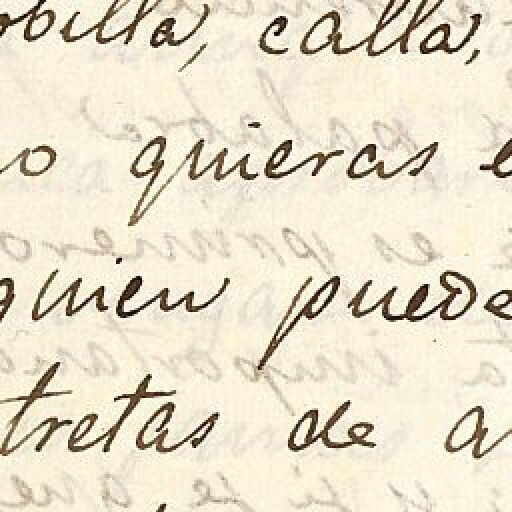 obilla, calla,
o quieras e
quien puede
tretas de a